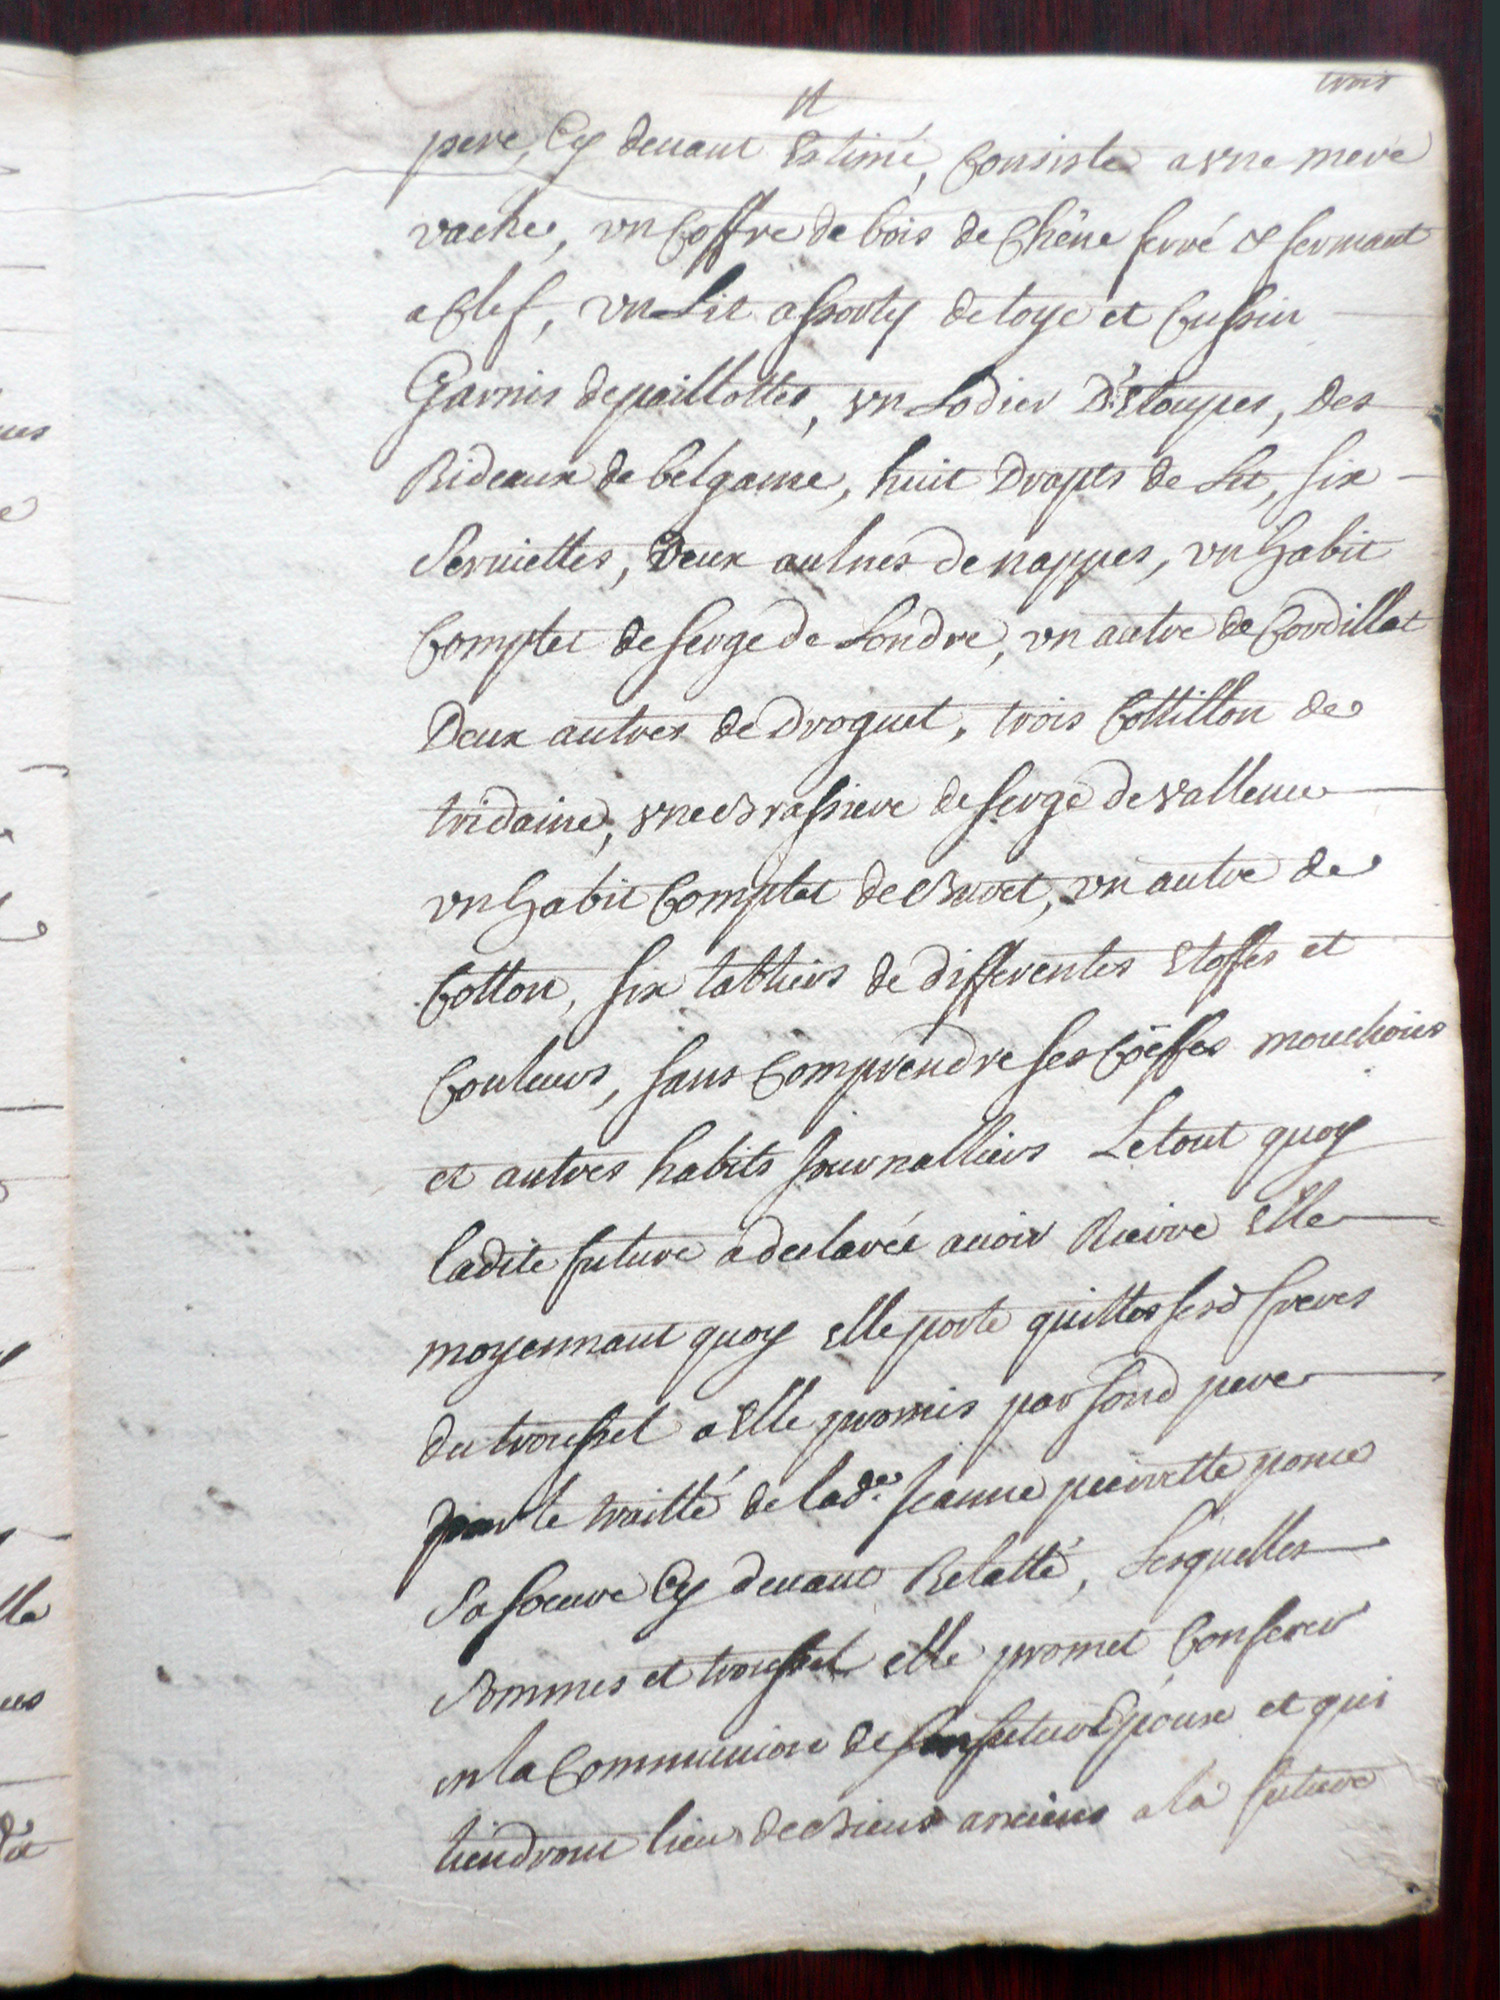 trois
pere, Cy devant Estimé, Consiste a vne mere
vache, vn Coffre de bois de Chêne ferré & fermant
a Clef, vn Lit assorty de toye et Cussin
Garnis de paillottes, vn Lodier D'Etoupes, Des
Rideaux de belgame, huit Drapts de Lit, six
Serviettes, Deux aulnes de nappes, vn habit
Complet de serge de Londre, vn autre de Cordillat
Deux autres de Droguet, trois Cottillon de
tridaine, vne Brassiere de serge de vallence
vn habit Complet de Buret, vn autre de
Cotton, six tabliers de differentes Etoffes et
Couleurs, sans Comprendre ses Coëffes mouchoirs
et autres habits journalliers Le tout quoy
ladite future a declarée avoir Rierre Elle
moyennant quoy Elle porte quittes sesd freres
du troussel a Elle promis par sond pere
par le traitté de lad.e Jeanne peirrette ponce
Sa soeure Cy devant Relatté, Lesquelles
Sommes et troussel elle promet Conferer
en la Communion de son futur Epoux et qui
tiendront lieu de Biens anciens a la future